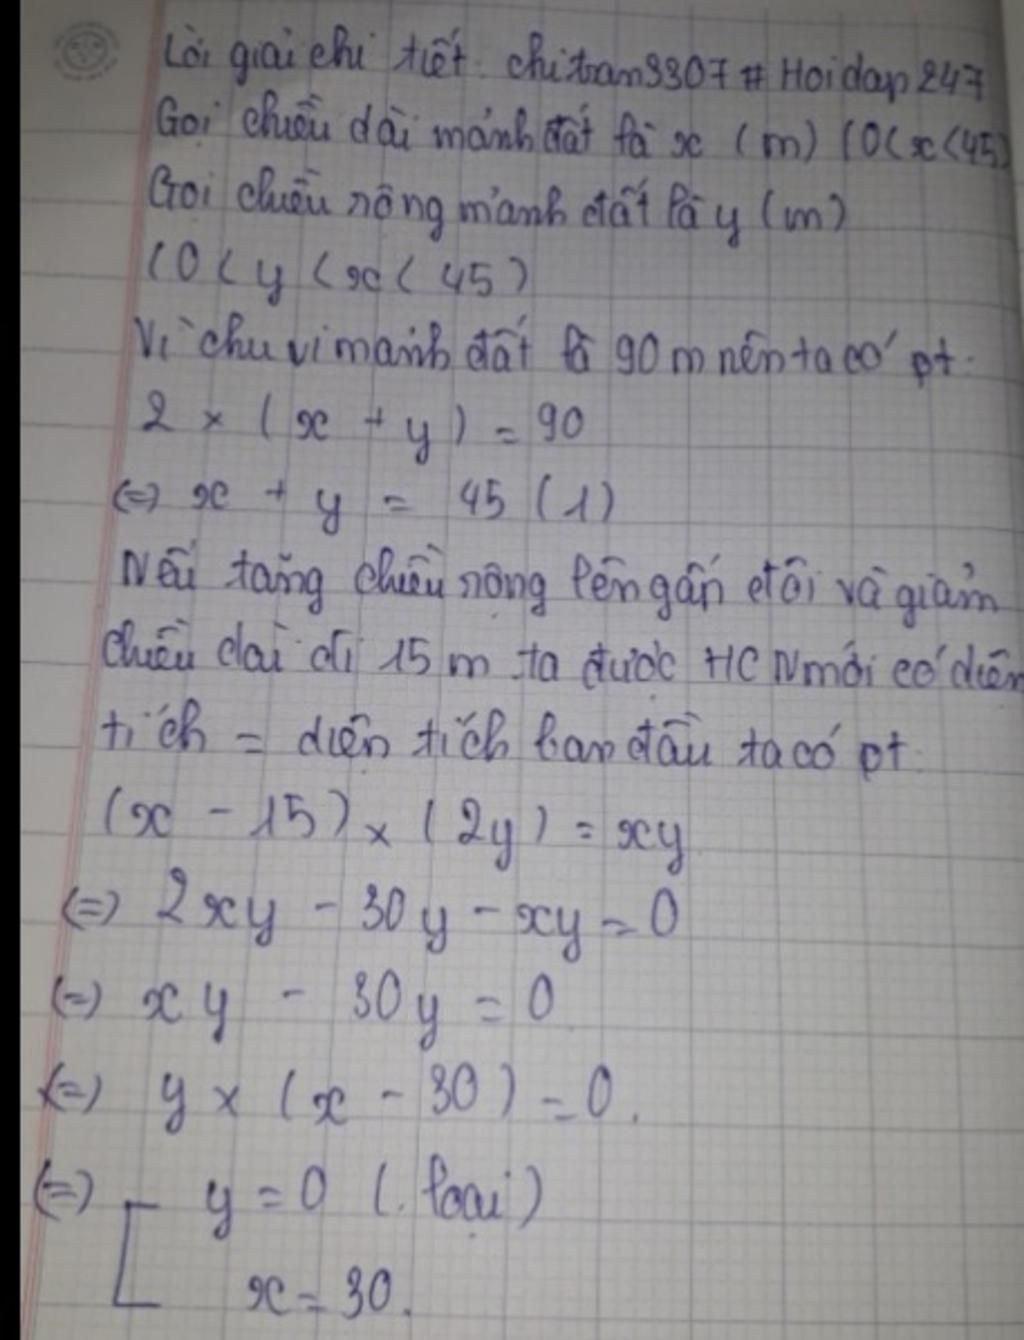 Lời giải chi tiết: chitran3307 # Hoidap247
Gọi chiều dài mảnh đất là x (m) (0<x<45)
Gọi chiều rộng mảnh đất là y (m)
(0<y<x<45)
Vì chu vi mảnh đất là 90 m nên ta có pt:
2 × (x + y) = 90
(=) x + y = 45 (1)
Nếu tăng chiều rộng lên gấp đôi và giảm
chiều dài đi 15 m ta được HCN mới có diện
tích = diện tích ban đầu ta có pt:
(x - 15) × (2y) = xy
(=) 2xy - 30y - xy = 0
(=) xy - 30y = 0
(=) y × (x - 30) = 0.
(=) [ y = 0 (loại)
x = 30.